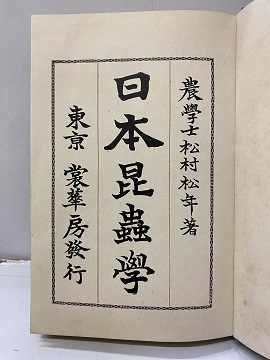 農學士松村松年著
日本昆蟲學
東京 裳華房發行